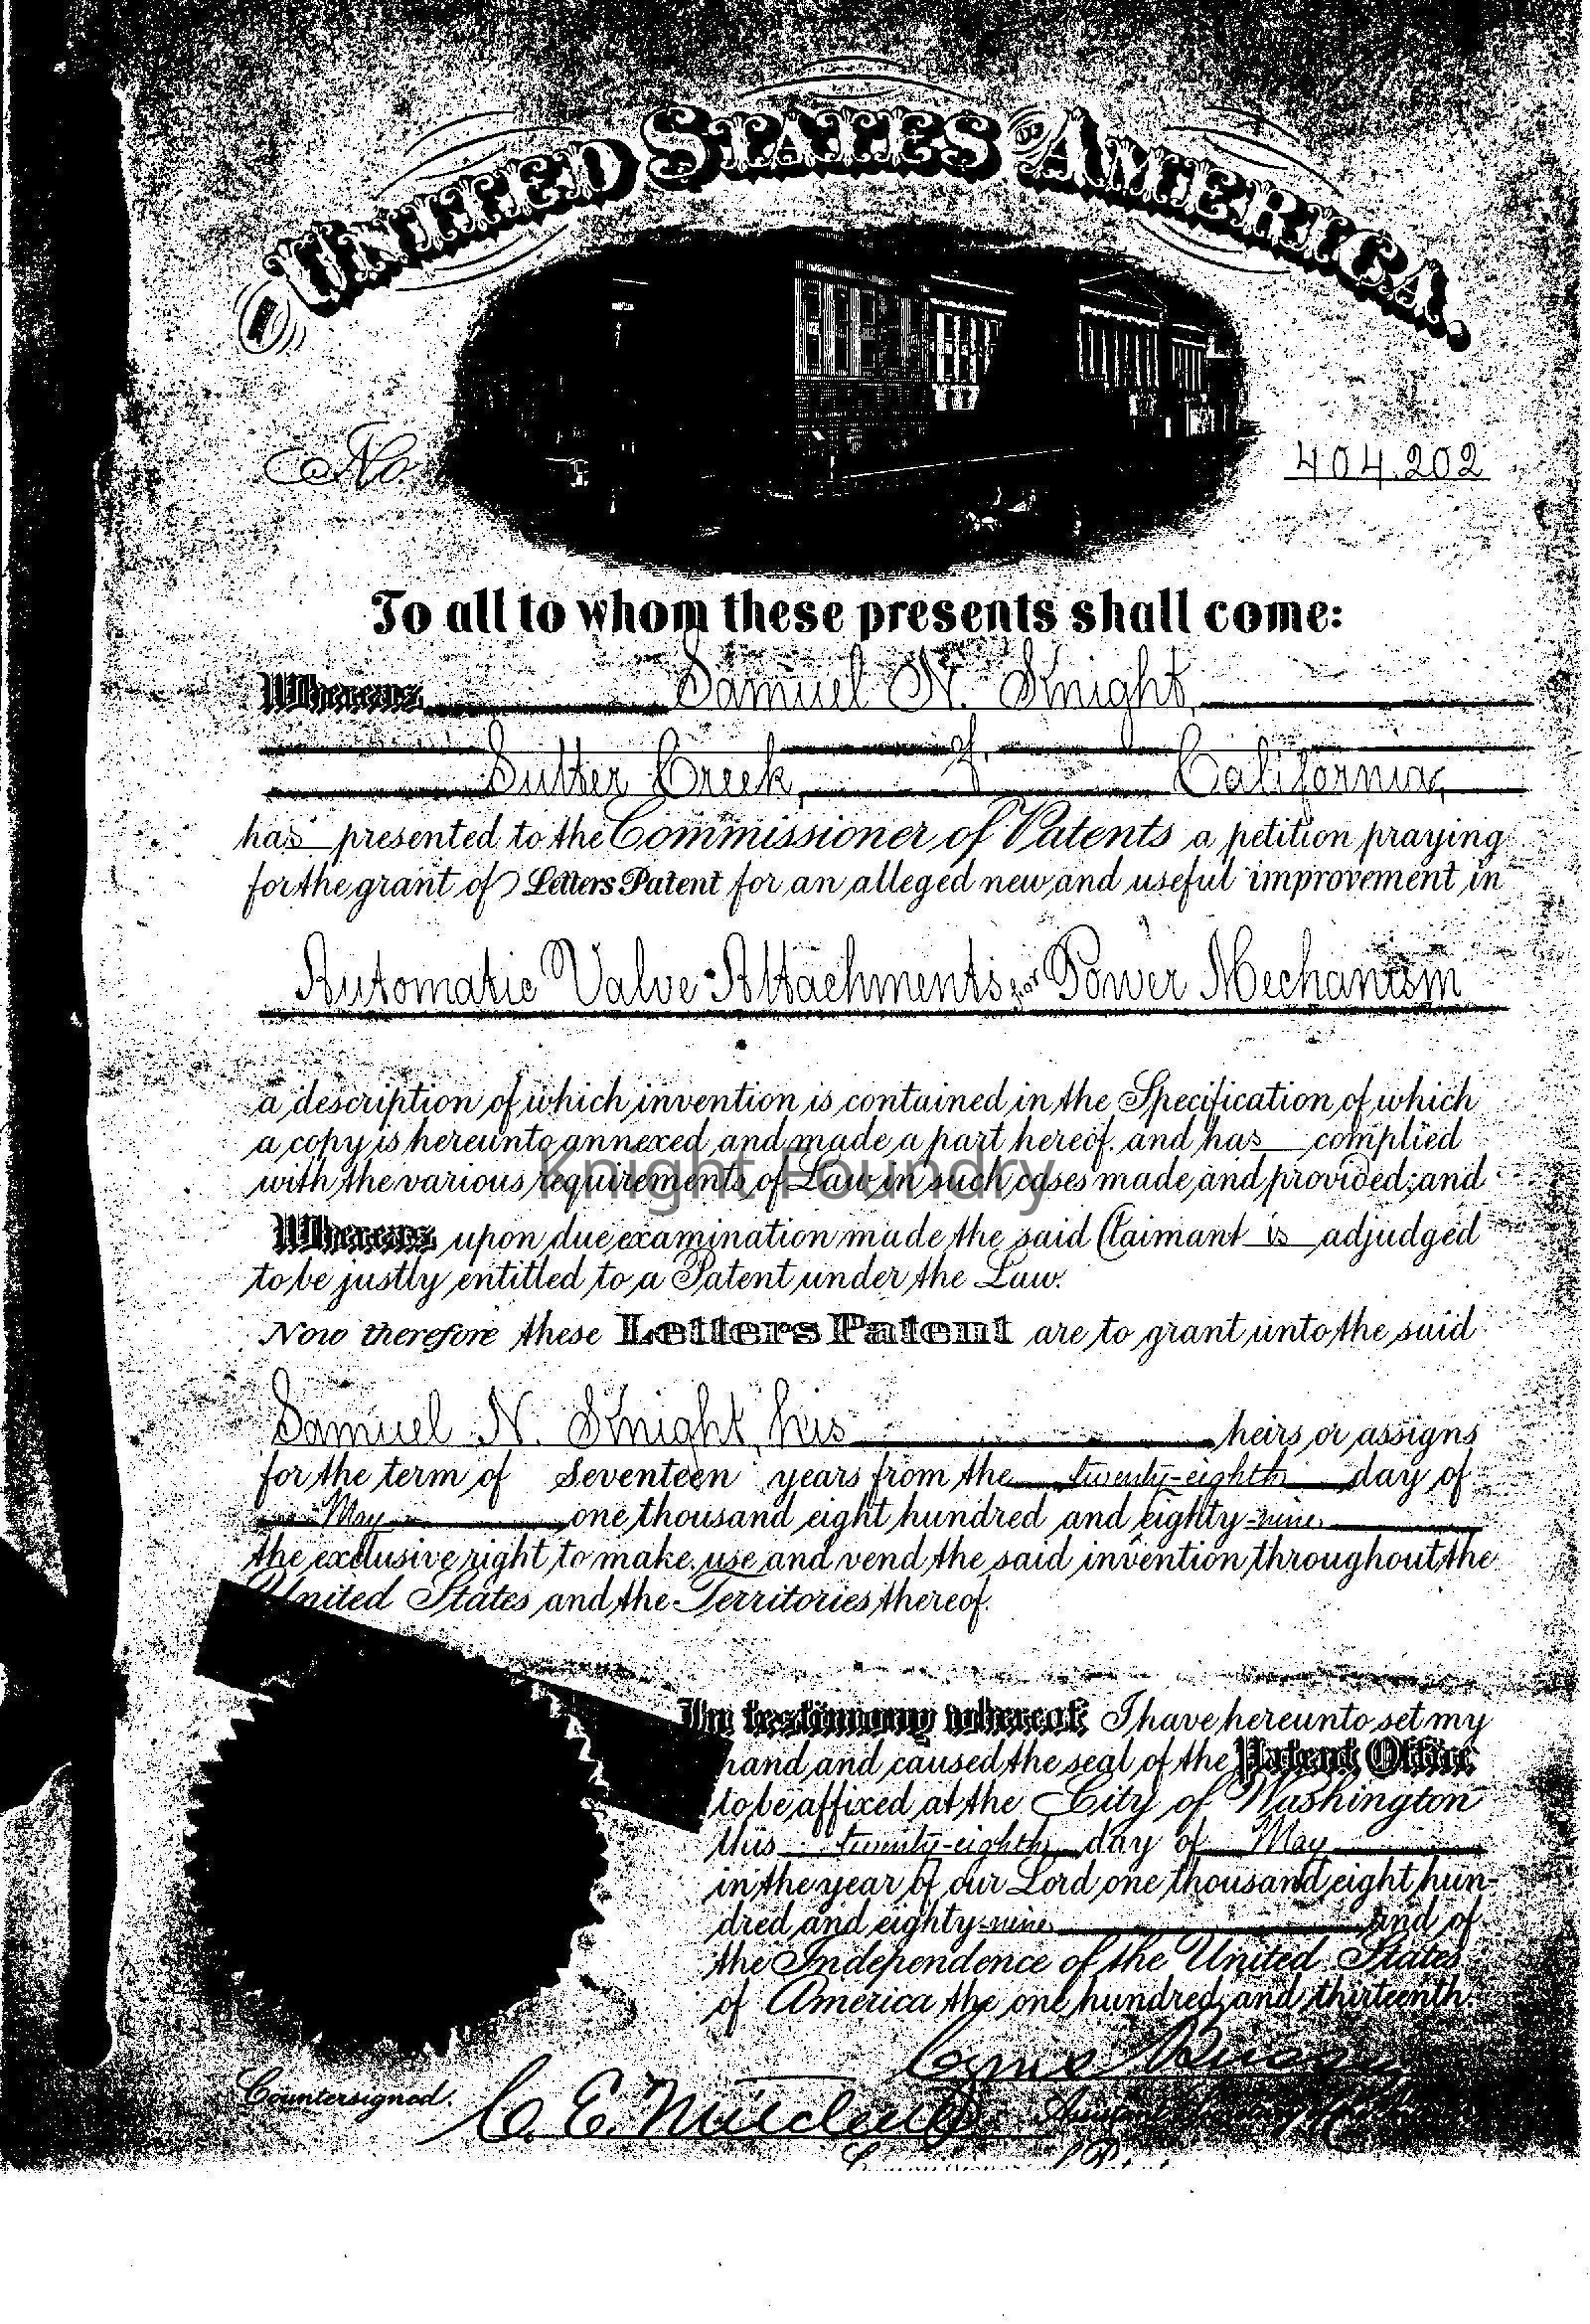 THE UNITED STATES OF AMERICA.
No. 404.202
To all to whom these presents shall come:
Whereas, Samuel N. Knight,
of
Sutter Creek, California,
has presented to the Commissioner of Patents a petition praying
for the grant of Letters Patent for an alleged new and useful improvement in
Automatic Valve Attachments for Power Mechanism
a description of which invention is contained in the Specification of which
a copy is hereunto annexed and made a part hereof, and has complied
with the various requirements of Law in such cases made and provided; and
Knight Foundry
Whereas, upon due examination made the said Claimant is adjudged
to be justly entitled to a Patent under the Law.
Now therefore these Letters Patent are to grant unto the said
Samuel N. Knight, his heirs or assigns
for the term of Seventeen years from the twenty-eighth day of
May one thousand eight hundred and eighty-nine
the exclusive right to make, use and vend the said invention throughout the
United States and the Territories thereof.
In testimony whereof, I have hereunto set my
hand and caused the seal of the Patent Office
to be affixed at the City of Washington
this twenty-eighth day of May
in the year of our Lord one thousand eight hun-
dred and eighty-nine and of
the Independence of the United States
of America the one hundred and thirteenth.
Countersigned. C. E.